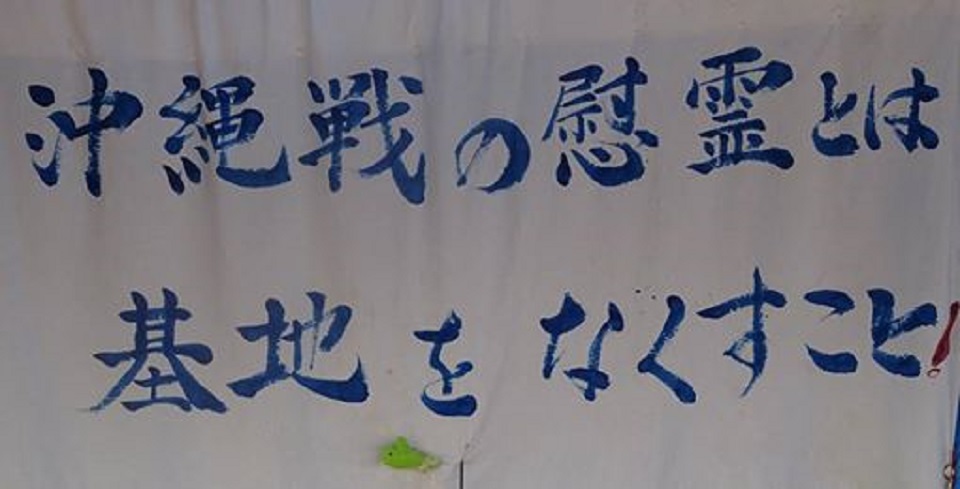 沖縄戦の慰霊とは
基地をなくすこと!